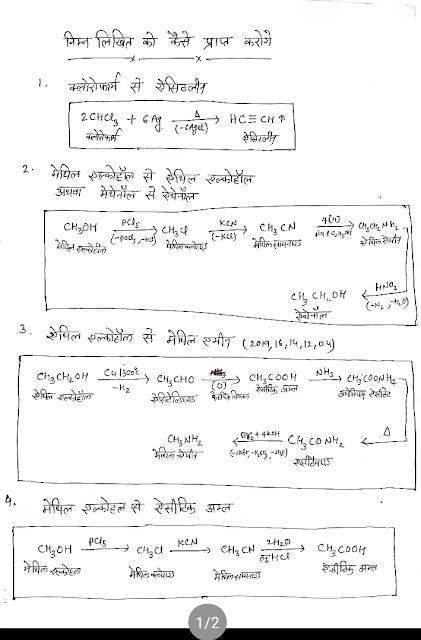 निम्न लिखित को कैसे प्राप्त करोगे
1. क्लोरोफार्म से ऐसिटलीन
2CHCl₃ + 6Ag Δ→ (-6AgCl) HC≡CH↑
क्लोरोफार्म ऐसिटिलीन
2. मेथिल एल्कोहॉल से ऐथिल एल्कोहॉल
अथवा मेथेनॉल से ऐथेनॉल
CH₃OH PCl₅→ (-POCl₃, -HCl) CH₃Cl KCN→ (-KCl) CH₃CN 4[H]→ Na+C₂H₅OH CH₃CH₂NH₂
मेथिल एल्कोहॉल मेथिल क्लोराइड मेथिल सायनाइड ऐथिल ऐमीन
CH₃CH₂OH ←HNO₂ (-N₂, -H₂O)
ऐथेनॉल
3. ऐथिल एल्कोहॉल से मेथिल एमीन (2019, 16, 14, 12, 04)
CH₃CH₂OH Cu|300°C→ -H₂ CH₃CHO [O]→ CH₃COOH NH₃→ CH₃COONH₄
ऐथिल एल्कोहॉल ऐसिटिक अम्ल अमोनियम ऐसीटेट
CH₃NH₂ ←Br₂+4KOH CH₃CONH₂ ←Δ
मेथिल ऐमीन ऐसीटेमाइड
4. मेथिल एल्कोहल से ऐसीटिक अम्ल
CH₃OH PCl₅→ CH₃Cl KCN→ CH₃CN 2H₂O→ CH₃COOH
मेथिल एल्कोहल मेथिल क्लोराइड मेथिल सायनाइड ऐसीटिक अम्ल
1/2